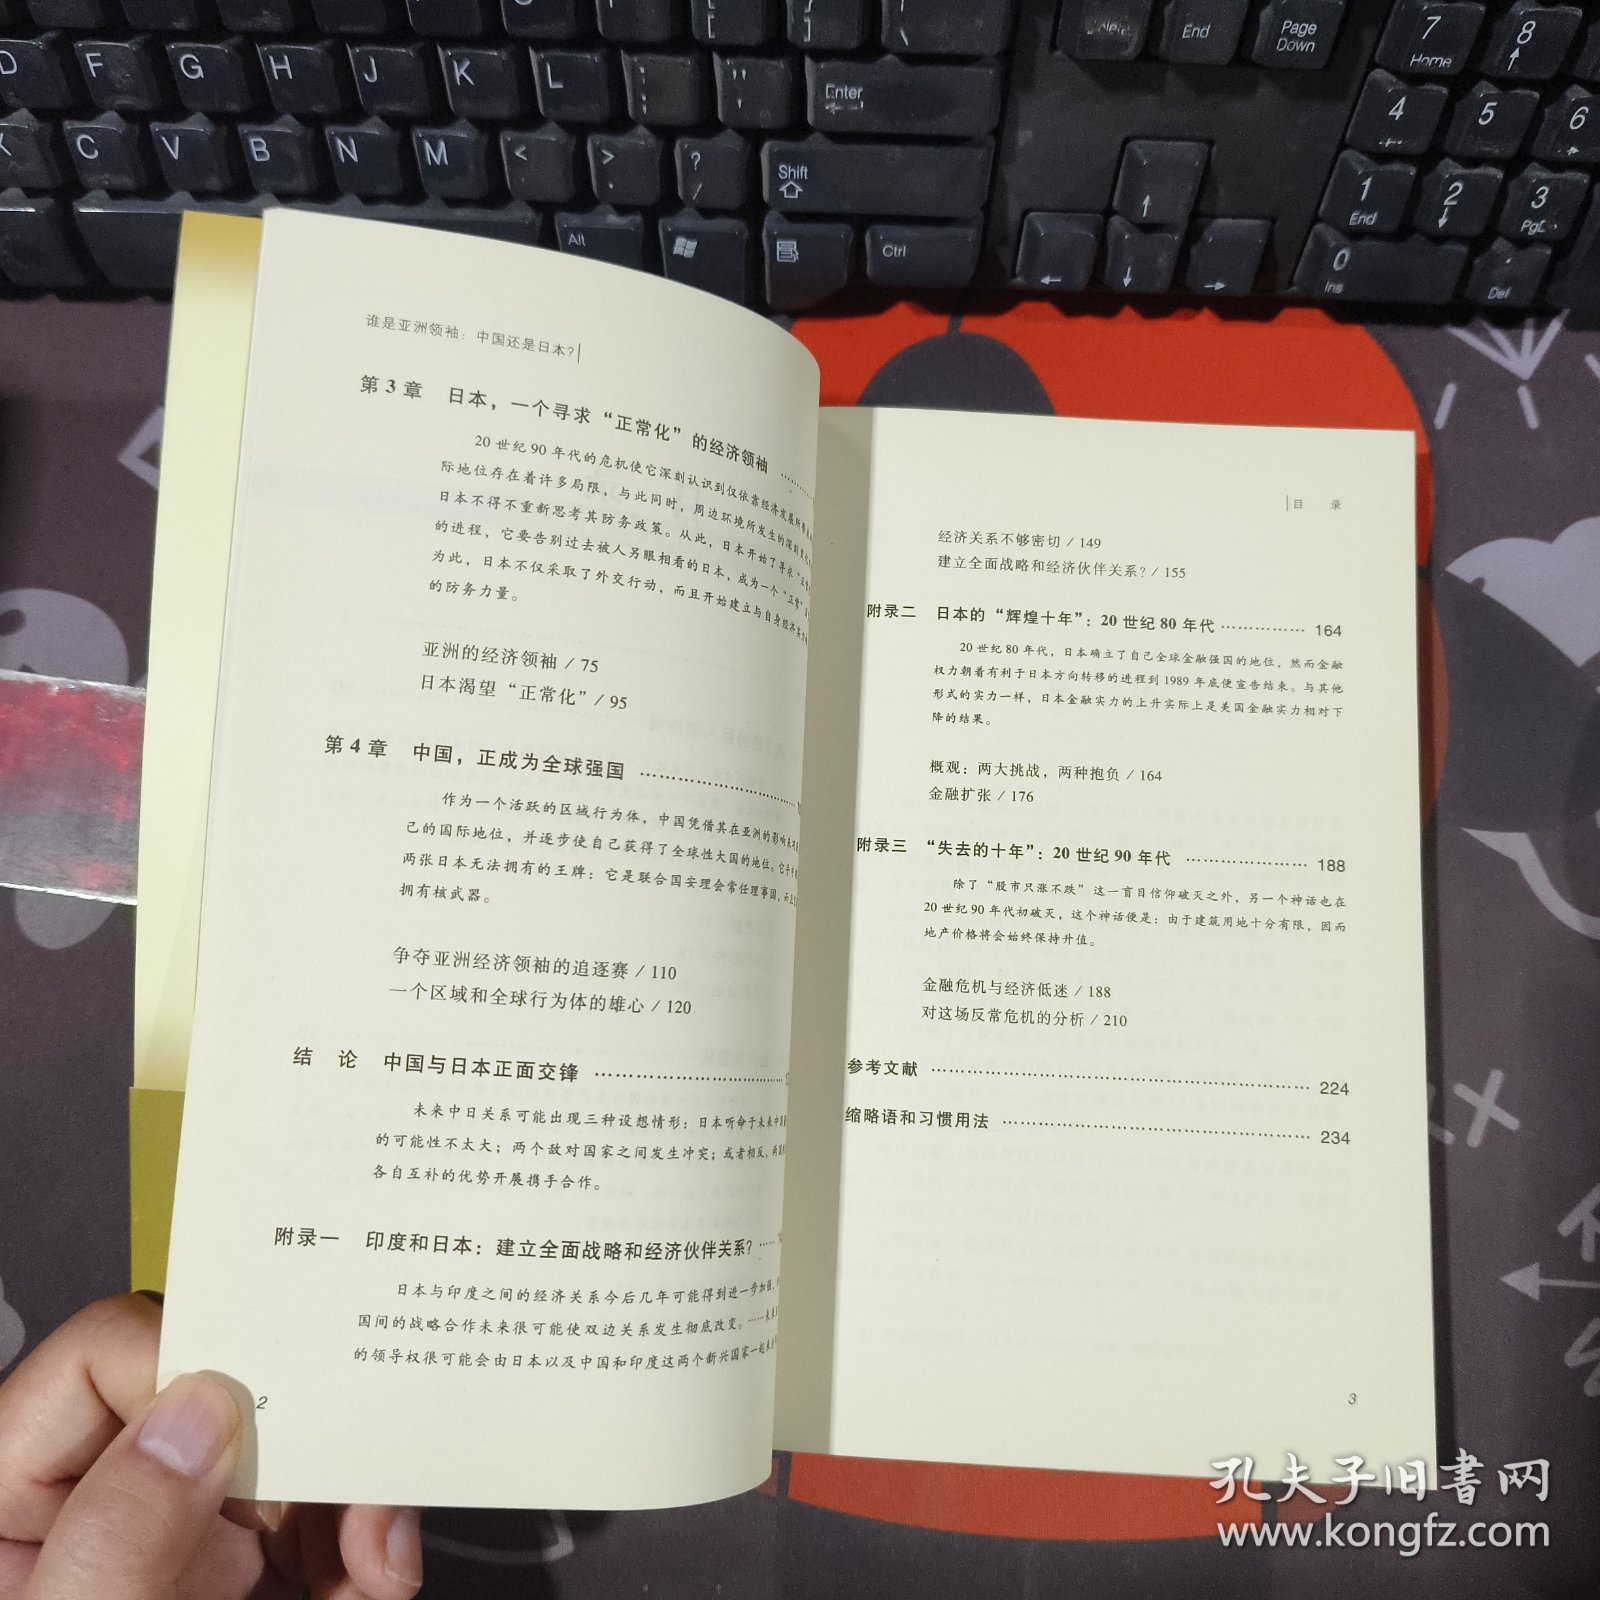 谁是亚洲领袖：中国还是日本？
第3章 日本，一个寻求“正常化”的经济领袖 …………
20世纪90年代的危机使它深刻认识到仅依靠经济发展所
际地位存在着许多局限，与此同时，周边环境所发生的深刻变化
日本不得不重新思考其防务政策。从此，日本开始了寻求“正常
的进程，它要告别过去被人另眼相看的日本，成为一个“正常”
为此，日本不仅采取了外交行动，而且开始建立与自身经济实力
的防务力量。
亚洲的经济领袖 / 75
日本渴望“正常化” / 95
第4章 中国，正成为全球强国 ……………………
作为一个活跃的区域行为体，中国凭借其在亚洲的影响来
己的国际地位，并逐步使自己获得了全球性大国的地位。它手中
两张日本无法拥有的王牌：它是联合国安理会常任理事国，而且
拥有核武器。
争夺亚洲经济领袖的追逐赛 / 110
一个区域和全球行为体的雄心 / 120
结 论 中国与日本正面交锋 ……………………
未来中日关系可能出现三种设想情形：日本听命于未来中国
的可能性不太大；两个敌对国家之间发生冲突；或者相反，两国
各自互补的优势开展携手合作。
附录一 印度和日本：建立全面战略和经济伙伴关系？……
日本与印度之间的经济关系今后几年可能得到进一步加强，
国间的战略合作未来很可能使双边关系发生彻底改变。……未来
的领导权很可能会由日本以及中国和印度这两个新兴国家一起来
2
目 录
经济关系不够密切 / 149
建立全面战略和经济伙伴关系？/ 155
附录二 日本的“辉煌十年”：20世纪80年代 …………… 164
20世纪80年代，日本确立了自己全球金融强国的地位，然而金融
权力朝着有利于日本方向转移的进程到1989年底便宣告结束。与其他
形式的实力一样，日本金融实力的上升实际上是美国金融实力相对下
降的结果。
概观：两大挑战，两种抱负 / 164
金融扩张 / 176
附录三 “失去的十年”：20世纪90年代 ………………… 188
除了“股市只涨不跌”这一盲目信仰破灭之外，另一个神话也在
20世纪90年代初破灭，这个神话便是：由于建筑用地十分有限，因而
地产价格将会始终保持升值。
金融危机与经济低迷 / 188
对这场反常危机的分析 / 210
参考文献 …………………………………………………… 224
缩略语和习惯用法 ………………………………………… 234
3
D F G H J K L : ; " ' Enter
X C V B N M < > ? / Shift
Alt Ctrl
Delete End Page Down
7 Home 8
4 5 6
1 End 2 3 PgDn
0 Ins . Del
孔夫子旧书网
www.kongfz.com